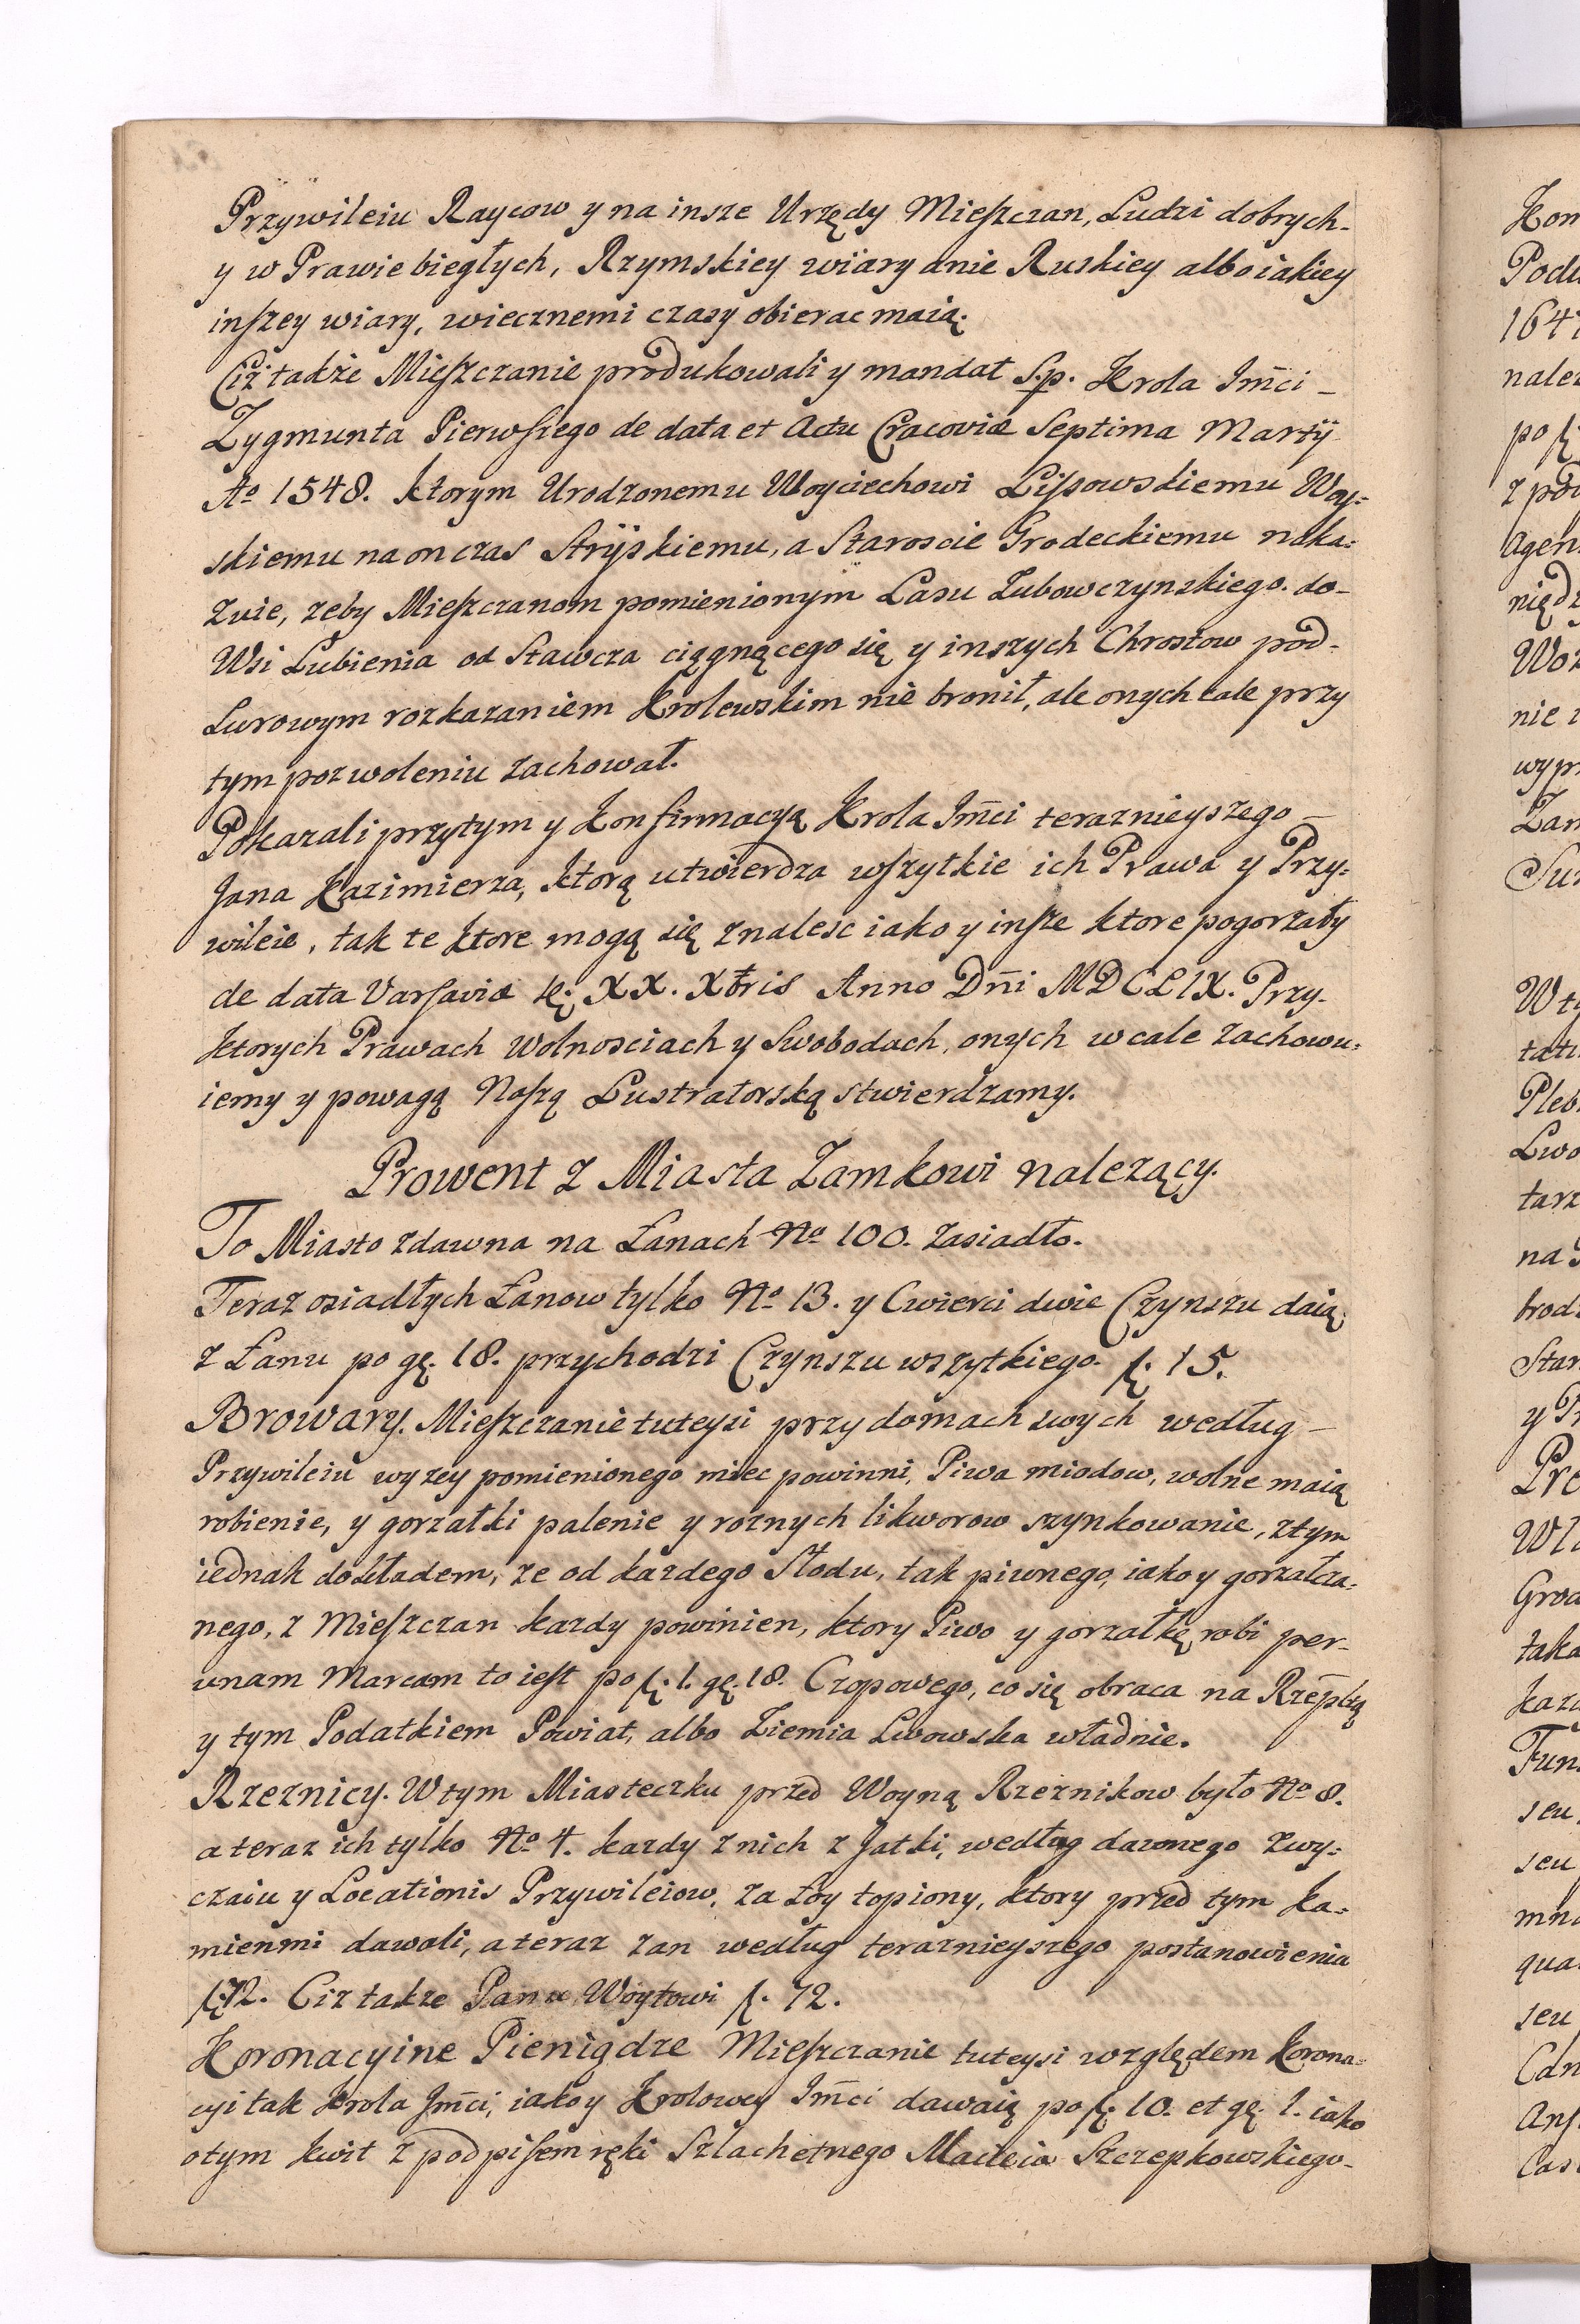 Przywileiu Raycow y na insze Urzędy Mieszczan, Ludzi dobrych-
y w Prawie biegłych, Rzymskiey wiary anie Ruskiey albo iakiey
inszey wiary, wiecznemi czasy obierac maią.
Ciż także Mieszczanie produkowali y mandat S.p. Krola Jm̄ci -
Zygmunta Pierwszego de data et Actu Cracoviæ Septima Martÿ
Ao 1548. ktorym Urodzonemu Woyciechowi Lissowskiemu Woy:
skiemu na on czas Strÿskiemu, a Staroscie Grodeckiemu naka:
zuie, zeby Mieszczanom pomienionym Lasu Lubowczynskiego. do-
Wsi Lubienia od Stawcza ciągnącego się y inszych Chrostow pod-
Surowym rozkazaniem Krolewskim nie bronił, ale onych cale przy
tym pozwoleniu zachował.
Pokazali przytym y Konfirmacyą Krola Jm̄ci teraznieyszego -
Jana Kazimierza, ktorą utwierdza wszytkie ich Prawa y Przy:
wileie, tak te ktore mogą się znalesc iako y insze ktore pogorzały
de data Varsaviæ XX. Xbris Anno Dn̄i MDCLIX. Przy-
ktorych Prawach Wolnosciach y Swobodach, onych w cale zachowu:
iemy y powagą Naszą Lustratorską stwierdzamy.
Prowent z Miasta Zamkowi nalezący.
To Miasto zdawna na Łanach No 100. zasiadło.
Teraz osiadłych Łanow tylko No 13. y Cwierci dwie Czynszu daią
z Łanu po gę. 18. przychodzi Czynszu wszytkiego. fę. 15.
Browary. Mieszczanie tuteysi przy domach swych według -
Przywileiu wyzey pomienionego miec powinni, Piwa miodow, wolne maią
robienie, y gorzałki palenie y roznych likworow szynkowanie, z tym
iednak dokładem, ze od kazdego Słodu, tak piwnego, iako y gorzałcza:
nego, z Mieszczan kazdy powinien, ktory Piwo y gorzałkę robi per-
unam Marcam to iest po fę. 1. gę. 18. Czopowego, co się obraca na Rzēpltą
y tym Podatkiem Powiat, albo Ziemia Lwowska władnie.
Rzeznicy. W tym Miasteczku przed Woyną Rzeznikow było No 8.
a teraz ich tylko No 4. kazdy z nich z Jatki, według dawnego zwy:
czaiu y Locationis Przywileiow, za Łoy topiony, ktory przed tym ka:
mienmi dawali, a teraz zan według teraznieyszego postanowienia
fę. 12. Ciz takze Panu Woytowi f. 12.
Koronacyine Pieniądze Mieszczanie tuteysi względem Korona:
cyi tak Krola Jm̄ci, iako y Krolowey Jm̄ci dawaią po fę. 10. et gę. 1. iako
o tym kwit z podpisem ręki Szlachetnego Macieia Szczepkowskiego-